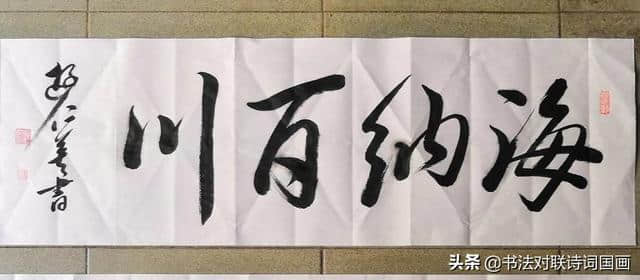 海纳百川
仁美书
头条 @书法对联诗词国画